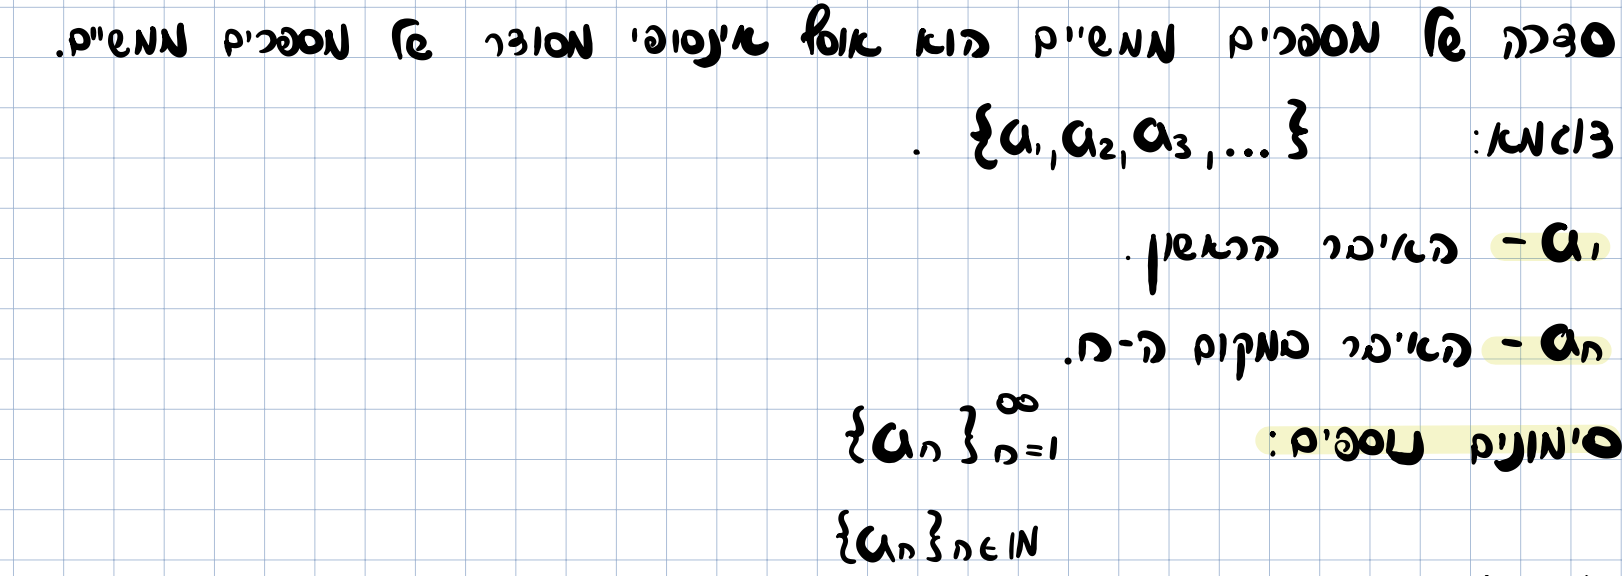 סדרה של מספרים ממשיים הוא אוסף אינסופי מסודר של מספרים ממשיים.
דוגמא: {a₁, a₂, a₃, ...} .
a₁ - האיבר הראשון.
aₙ - האיבר במקום ה-n.
סימונים נוספים: {aₙ}ₙ₌₁^∞
{aₙ}ₙ∈ℕ